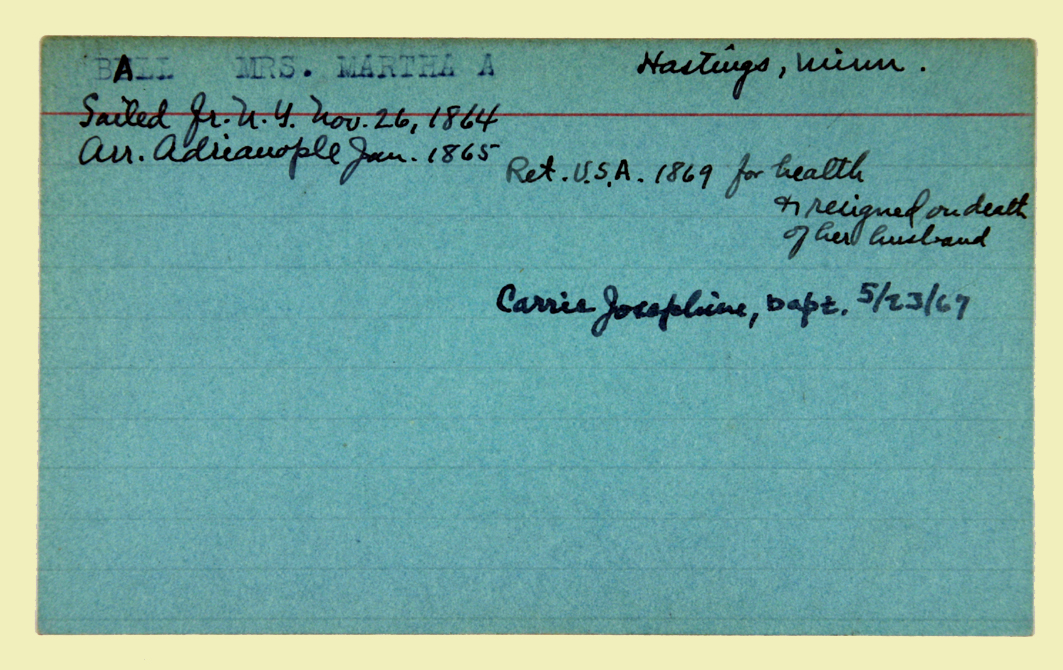 BALL MRS. MARTHA A Hastings, Minn.
Sailed fr. N. Y. Nov. 26, 1864
Arr. Adrianople Jan. 1865
Ret. U.S.A. 1869 for health
& resigned on death
of her husband
Carrie Josephine, bapt. 5/23/67